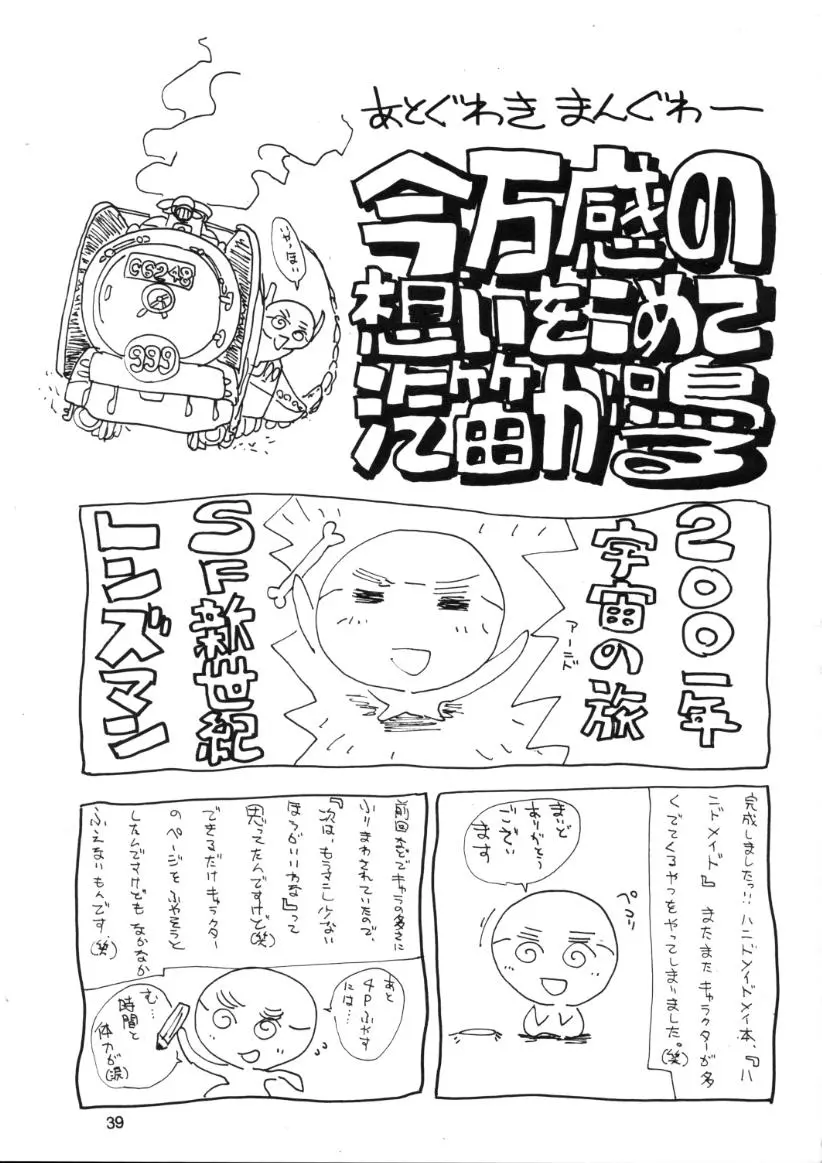 あとぐわき まんぐわー
今万感の
想いをこめて
汽笛が鳴る
いやっほい
C6248
999
2001年
宇宙の旅
アーニド
SF新世紀
レンズマン
完成しましたっ!! ハニドメイドメイ本、『ハ
ニドメイド』 またまたキャラクターが多
くでてくるやつをやってしまいました。(笑)
まいど
ありがとう
ござい
ます
ペコリ
前回などでキャラの多さに
ふりまわされていたので、
『次は、もうマニし少ない
ほうがいいわな』って
思ってたんですけど(笑)
できるだけキャラクター
のページをふやそうと
したんですけども なかなか
ふえないもんです。(笑)
あと
4Pふやす
には…
む…
時間と
体力が(涙)
39